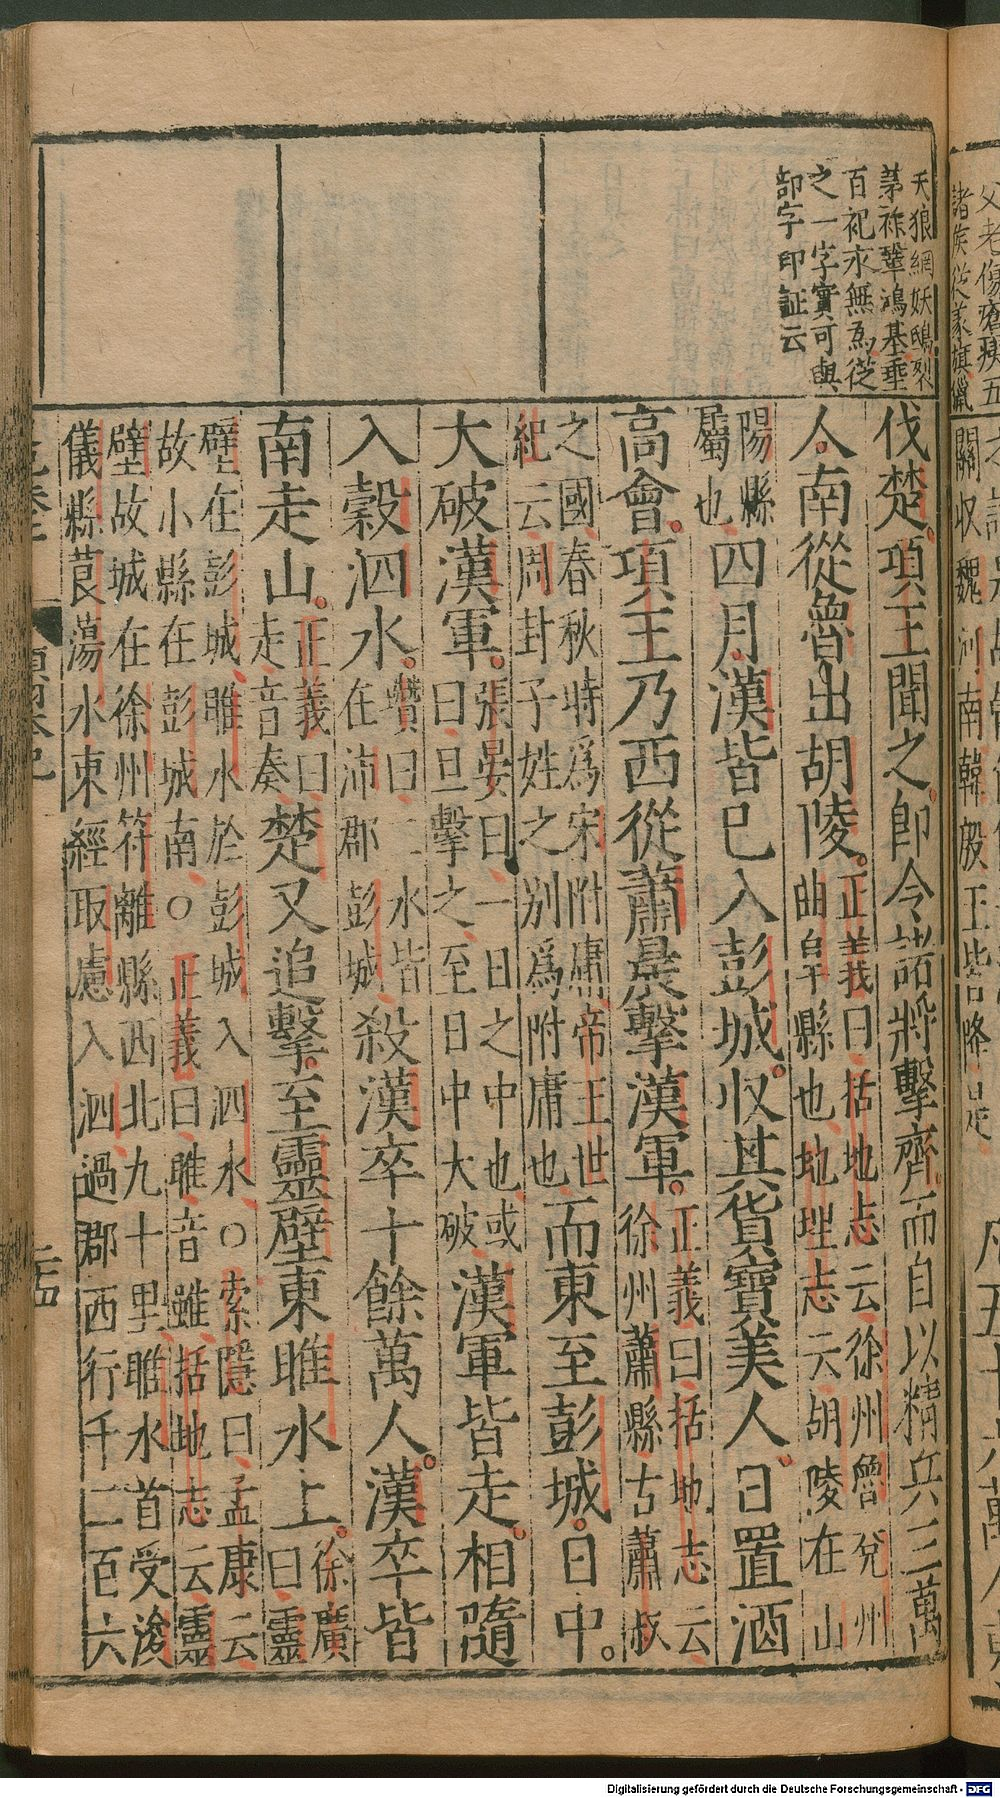 天狼網妖鴟裂
茅祚肇鴻基垂
百祀永無爲從
之一字實可與
部字印証云
伐楚項王聞之卽令諸將擊齊而自以精兵三萬
人南從魯出胡陵正義曰括地志云徐州魯兗州
曲阜縣也地理志云胡陵在山
陽縣
屬也四月漢皆已入彭城收其貨寶美人日置酒
高會項王乃西從蕭晨擊漢軍正義曰括地志云
徐州蕭縣古蕭叔
之國春秋時爲宋附庸帝王世
紀云周封子姓之別爲附庸也而東至彭城日中
大破漢軍張晏曰一日之中也或
曰旦擊之至日中大破漢軍皆走相隨
入穀泗水瓚曰二水皆
在沛郡彭城殺漢卒十餘萬人漢卒皆
南走山正義曰
走音奏楚又追擊至靈壁東睢水上徐廣
曰靈
壁在彭城睢水於彭城入泗水○索隱曰孟康云
故小縣在彭城南○正義曰睢音雖括地志云靈
壁故城在徐州符離縣西北九十里睢水首受浚
儀縣莨蕩水東經取慮入泗過郡西行千二百六
父老傷瘡痍五
諸侯從
關収魏河南韓殷王皆降
Digitalisierung gefördert durch die Deutsche Forschungsgemeinschaft - DFG